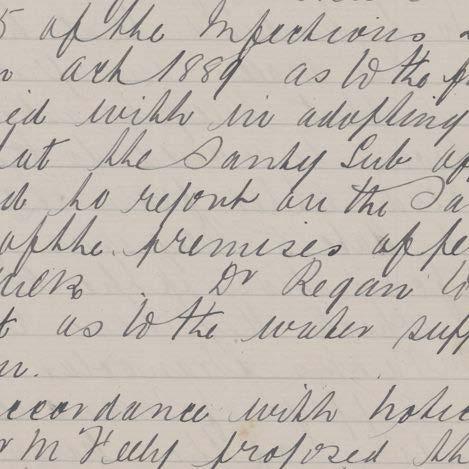 5 of the Infectious
n act 1889 as to the
ied with in adopting
ut the Santy Sub
d to report on the Sa
of the premises appe
Dr Regan to
t as to the water supp
n.
ccordance with notic
r M Feely proposed th